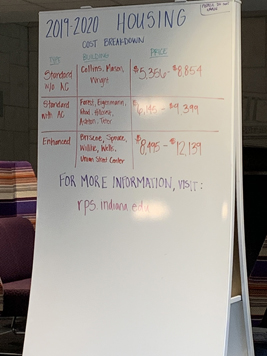 2019-2020 HOUSING
COST BREAKDOWN
TYPE BUILDING PRICE
Standard w/o AC Collins, Mason, Wright $5,356 - $8,854
Standard with AC Forest, Eigenmann, Read, Ashton, Teter $9,399
Enhanced Briscoe, Spruce, Willkie, Wells, Union Street Center $8,495 - $12,139
FOR MORE INFORMATION, VISIT:
rps.indiana.edu